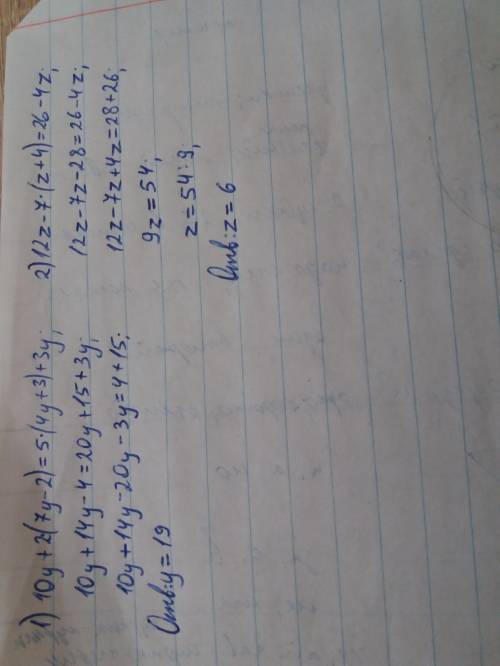 1) 10y+2(7y-2)=5·(4y+3)+3y;
10y+14y-4=20y+15+3y;
10y+14y-20y-3y=4+15;
Отв:y=19
2) 12z-7·(z+4)=26-4z;
12z-7z-28=26-4z;
12z-7z+4z=28+26;
9z=54;
z=54:9;
Отв:z=6